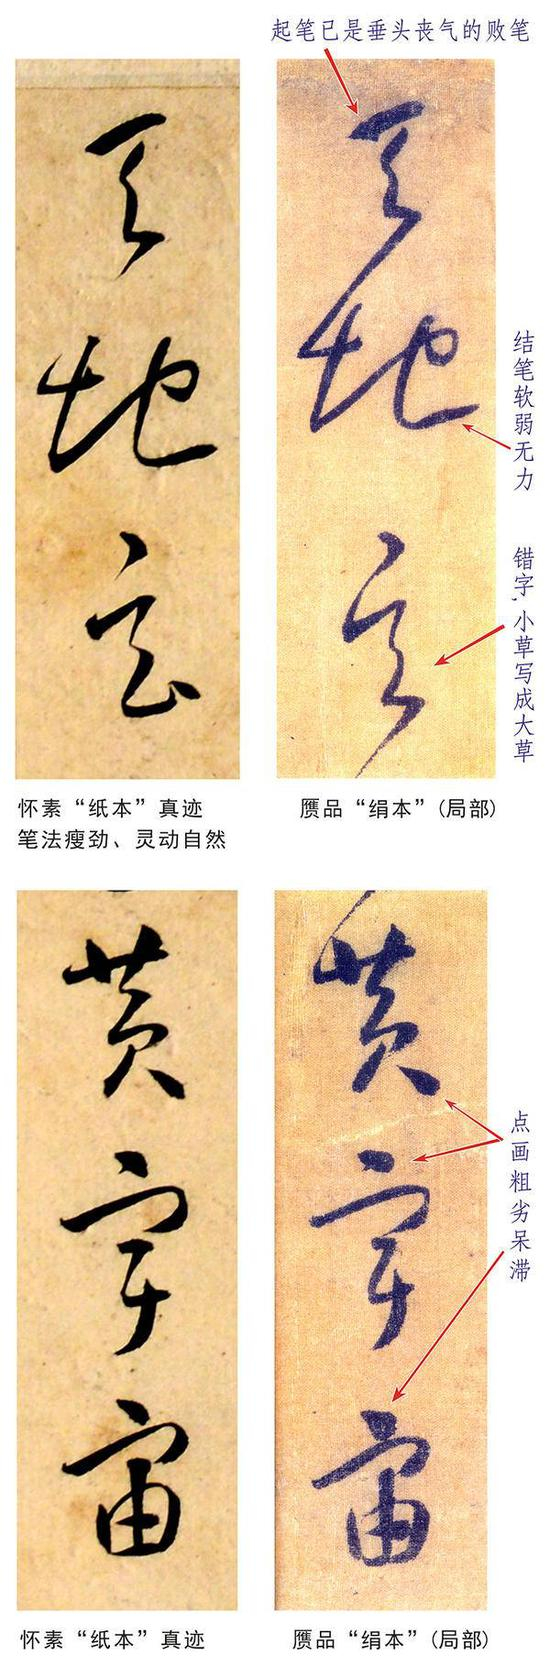 起笔已是垂头丧气的败笔
天
地
玄
结笔软弱无力
错字,小草写成大草
怀素“纸本”真迹
笔法瘦劲、灵动自然
赝品“绢本”(局部)
黄
宇
宙
点画粗劣呆滞
怀素“纸本”真迹
赝品“绢本”(局部)